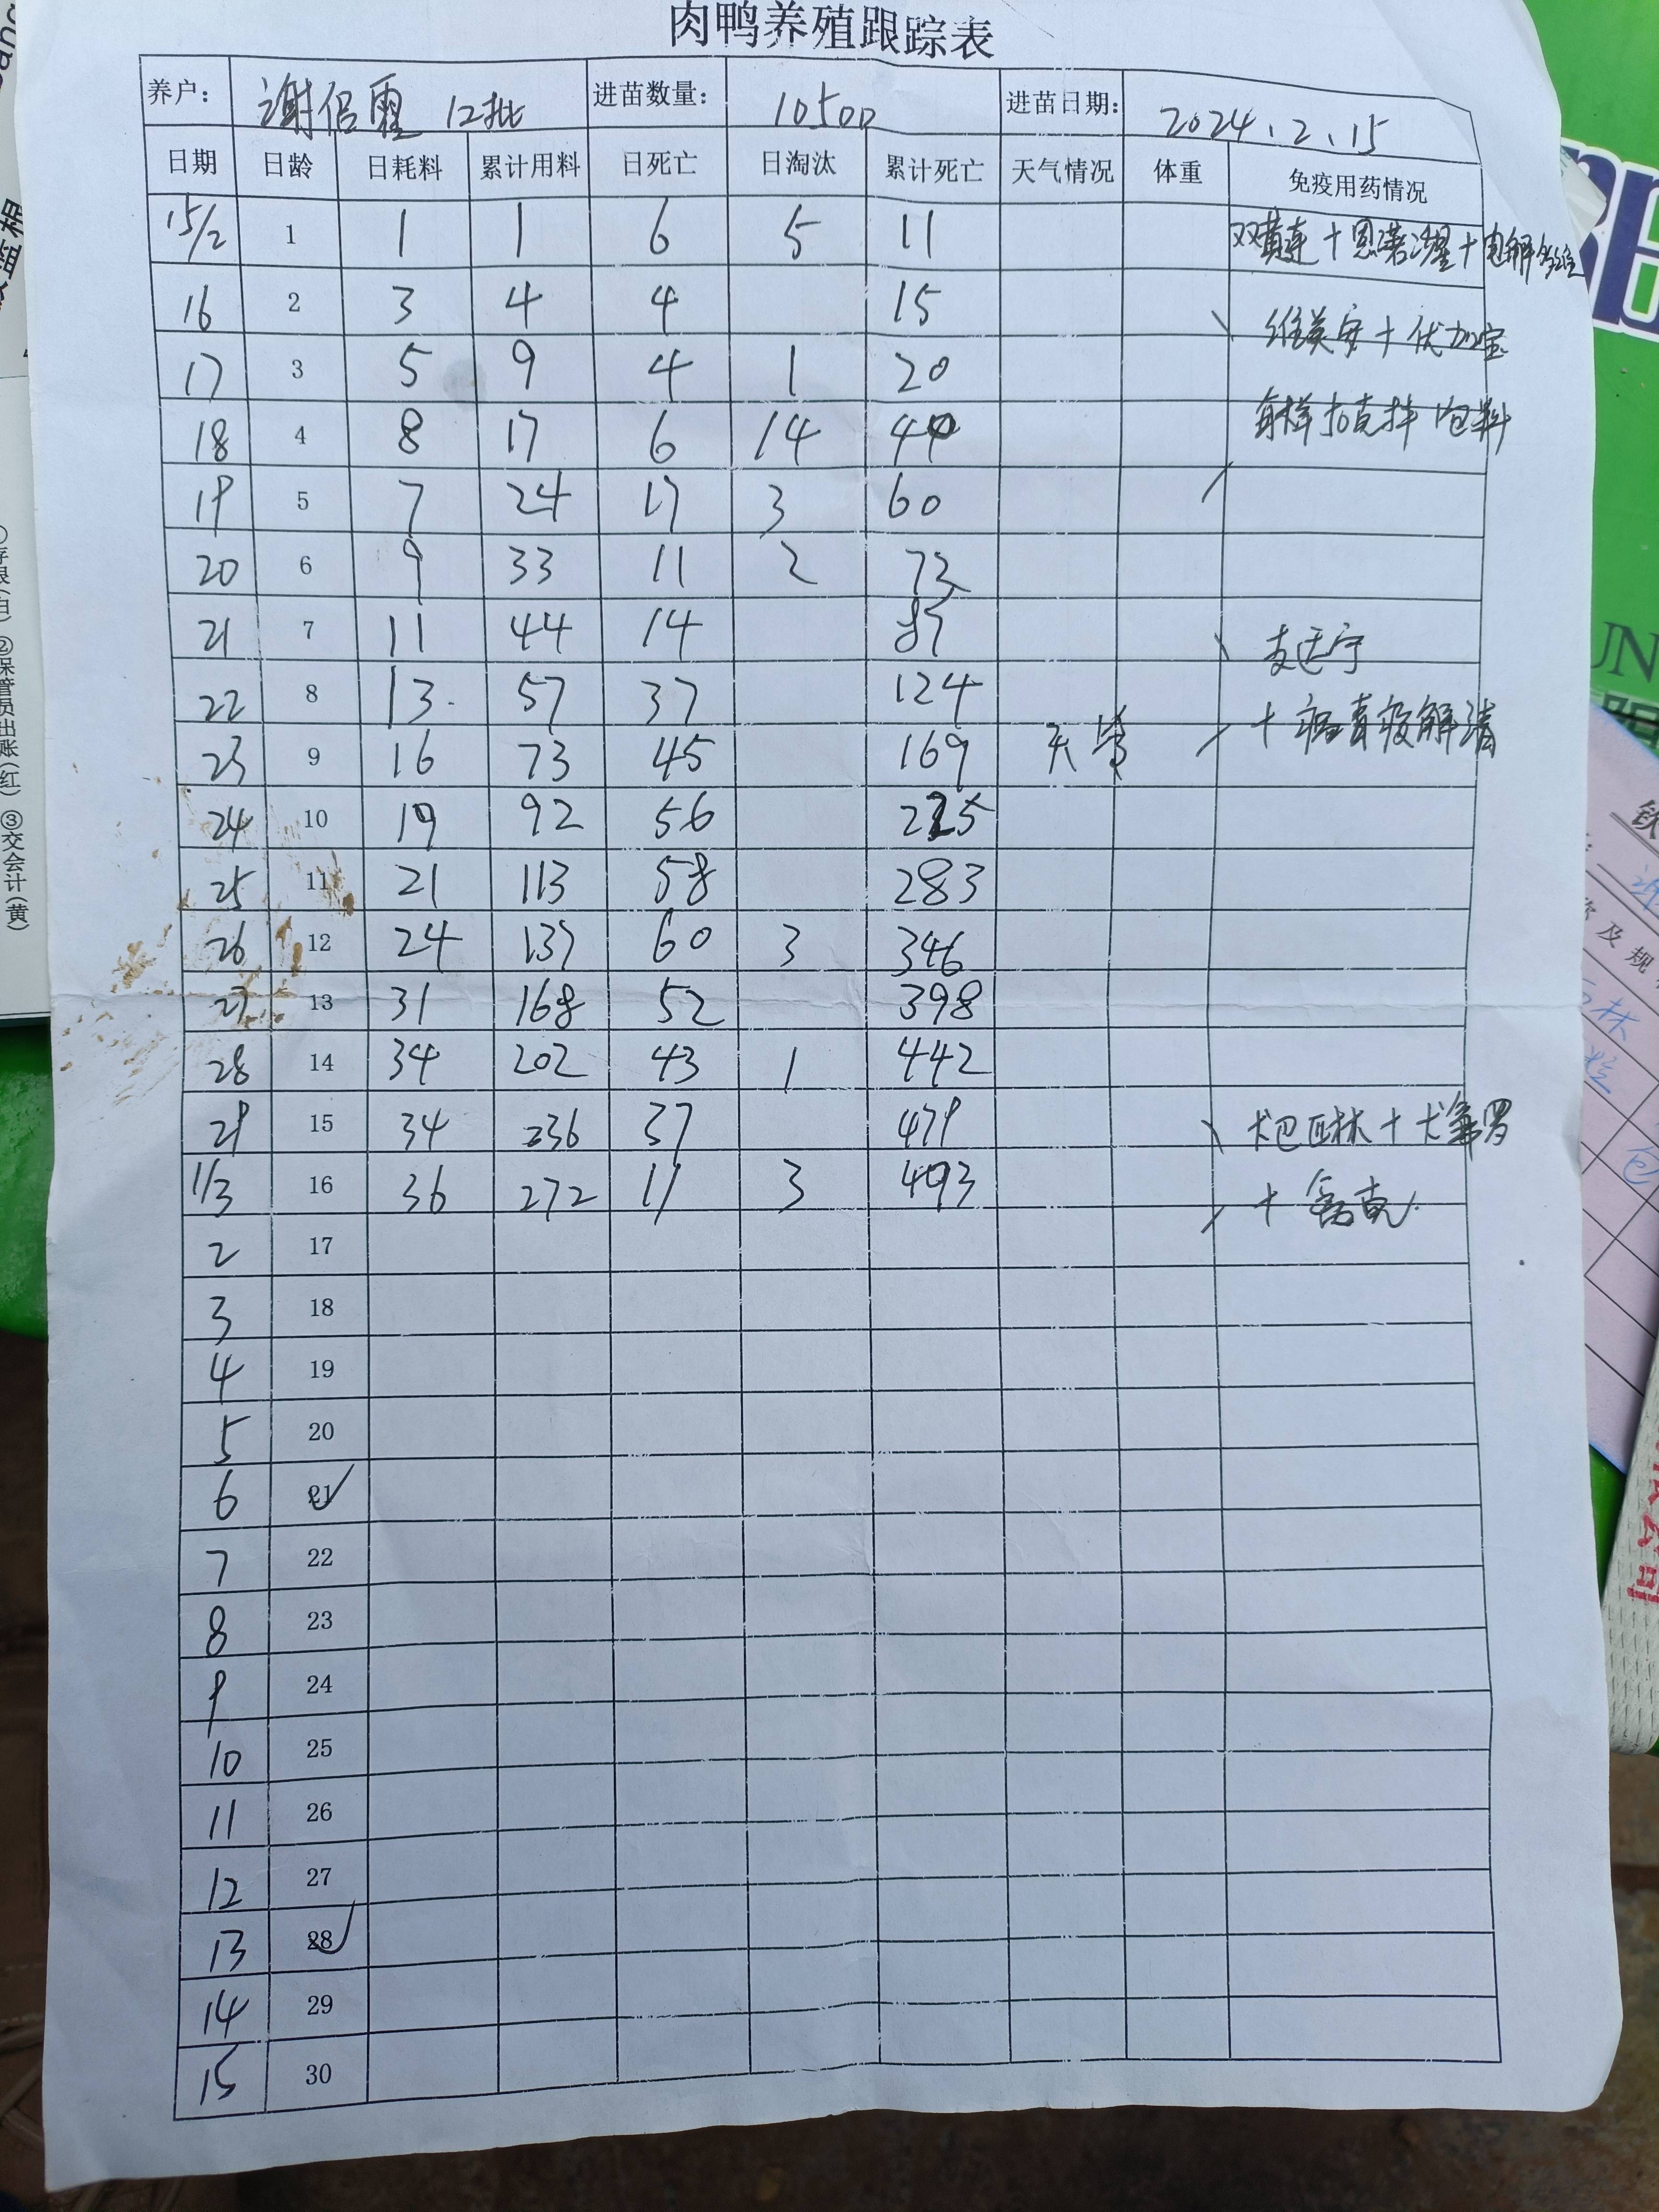 肉鸭养殖跟踪表
养户： 谢侣霞 12批 进苗数量： 10500 进苗日期： 2024、2、15
日期 日龄 日耗料 累计用料 日死亡 日淘汰 累计死亡 天气情况 体重 免疫用药情况
15/2 1 1 1 6 5 11 双黄连+恩诺沙星+电解多维
16 2 3 4 4 15 维英安+优加宝
17 3 5 9 4 1 20
18 4 8 17 6 14 40
19 5 7 24 17 3 60
20 6 9 33 11 2 73
21 7 11 44 14 87
22 8 13 57 37 124 +病毒疫解清
23 9 16 73 45 169
24 10 19 92 56 225
25 11 21 113 58 283
26 12 24 137 60 3 346
27 13 31 168 52 398
28 14 34 202 43 1 442
29 15 34 236 37 479
1/3 16 36 272 11 3 493
2 17
3 18
4 19
5 20
6 21
7 22
8 23
9 24
10 25
11 26
12 27
13 28
14 29
15 30
②保管员出账(红) ③交会计(黄)
及规